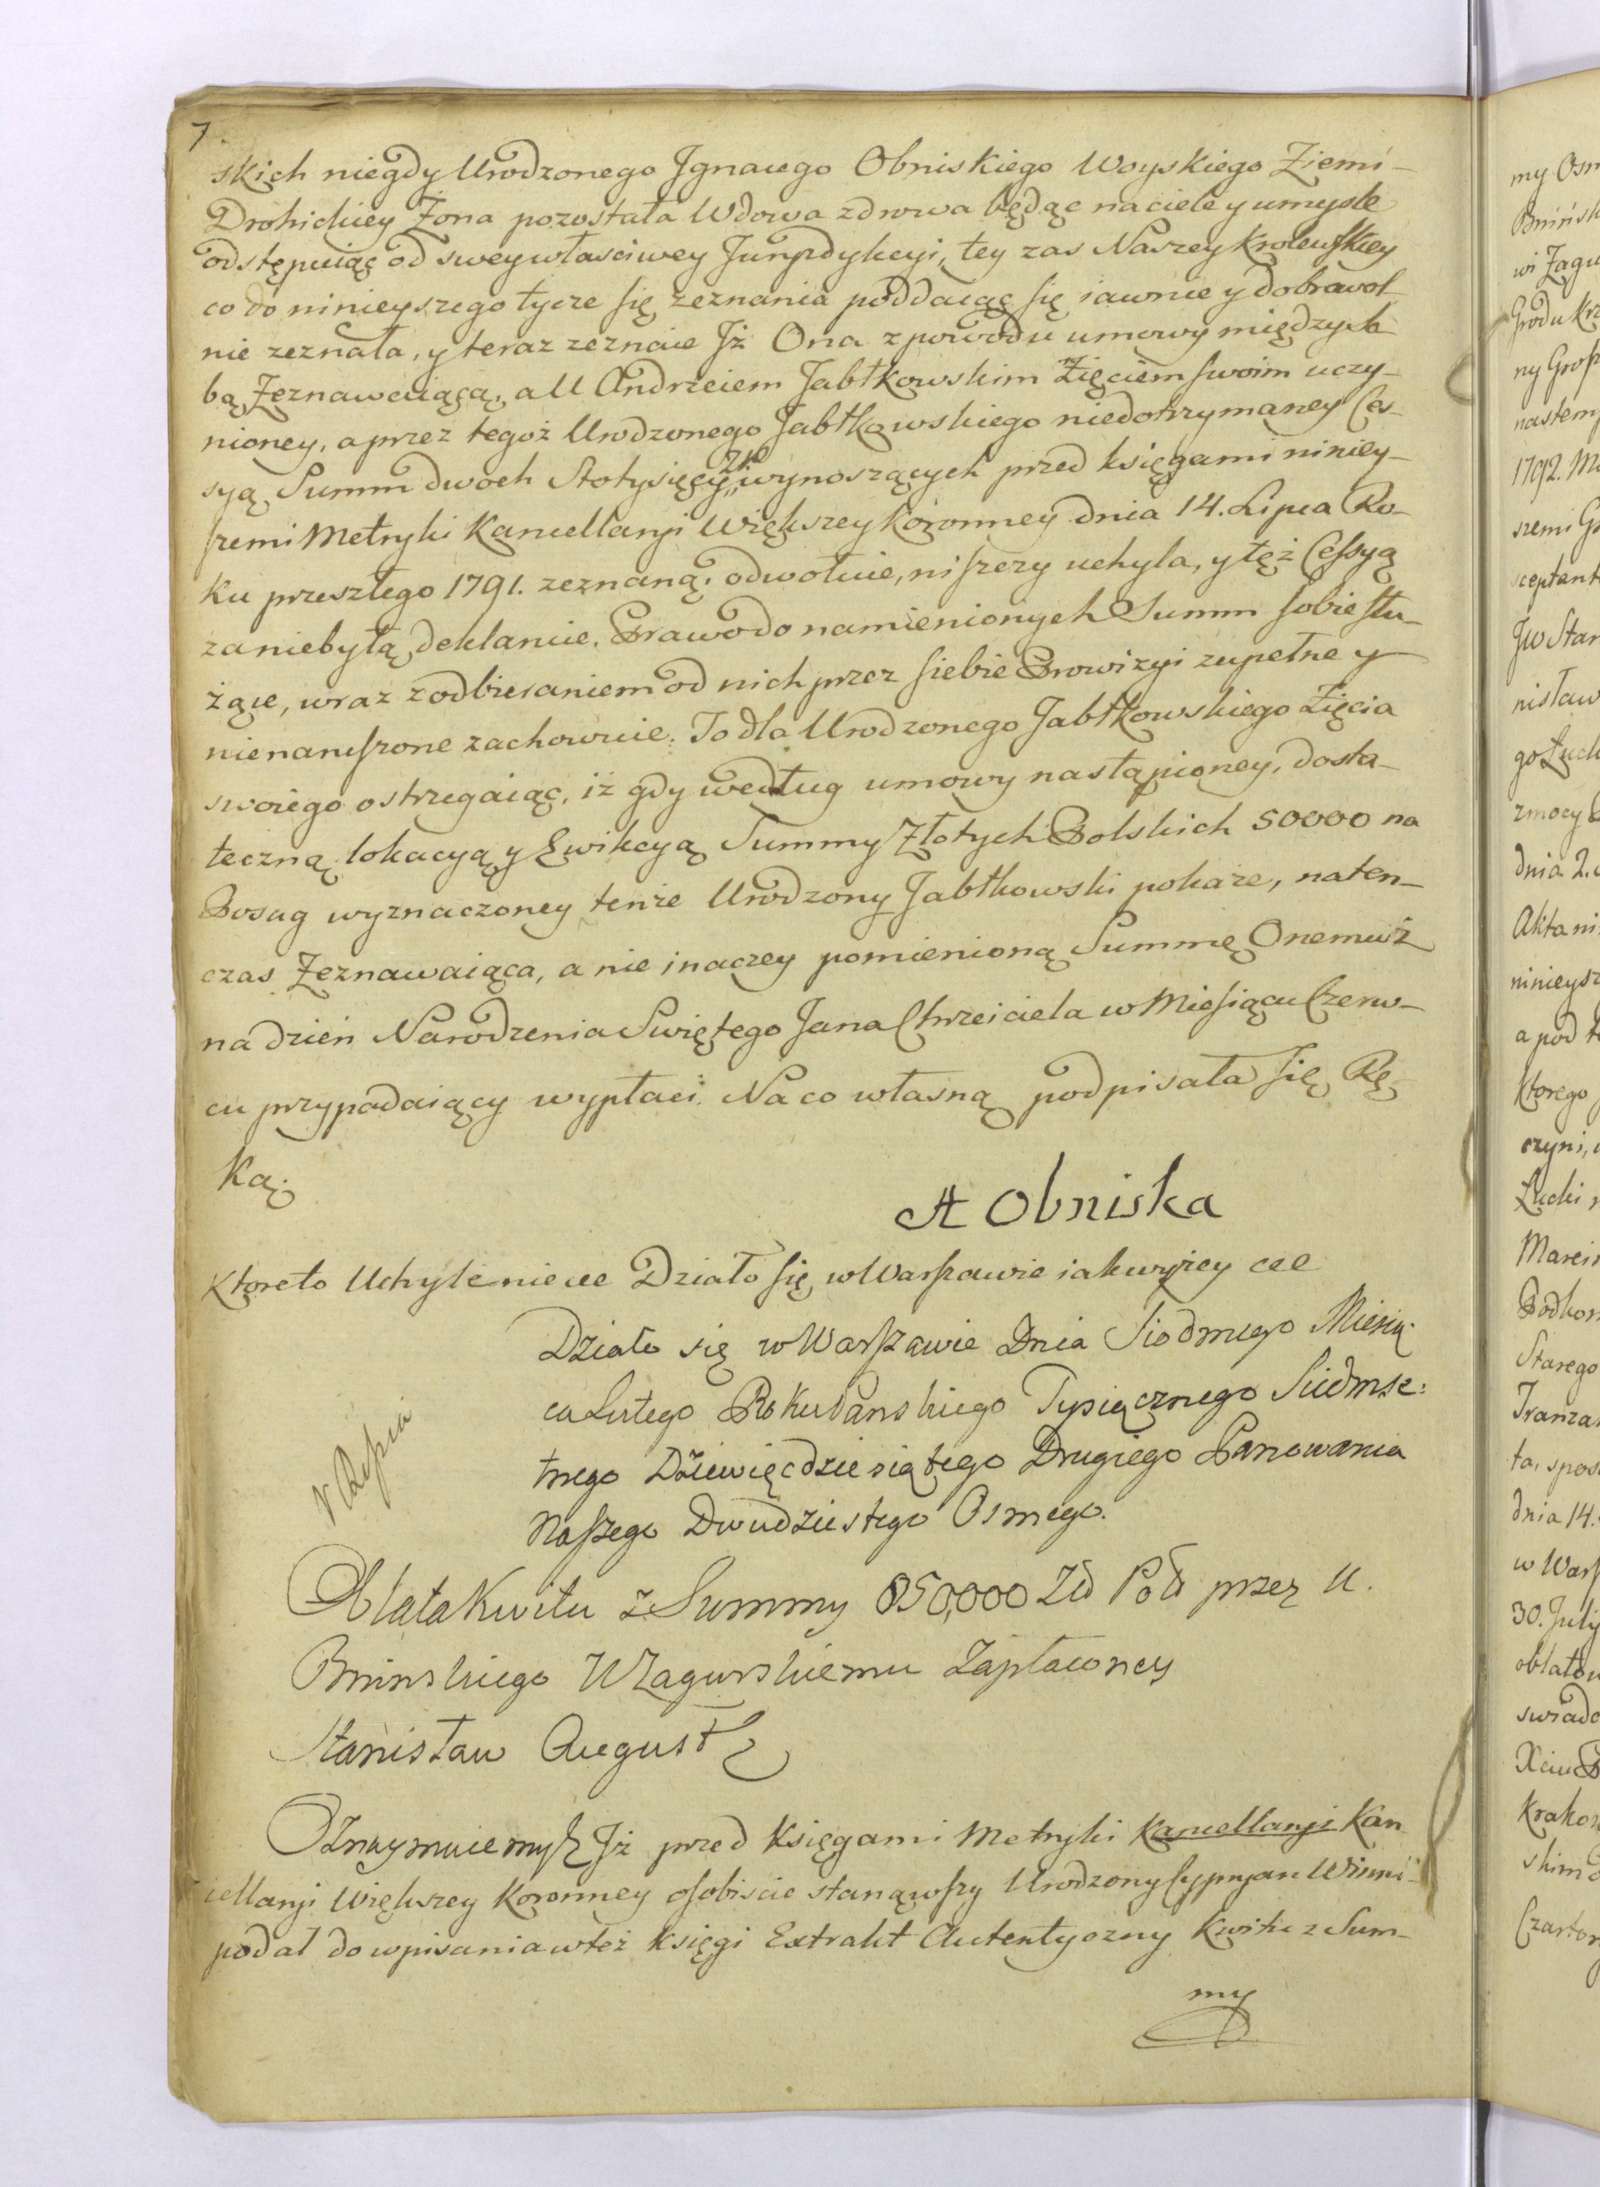 7
skich niegdy Urodzonego Jgnacego Obniskiego Woyskiego Ziemi
Drohickiey Zona pozostała Wdowa zdrowa będąc na ciele y umysle
odstępuiąc od swey własciwey Juryzdykcyi, tey zas Naszey Krolewskiey
co do ninieyszego tycze się zeznania poddaiąc się iawnie y dobrowol
nie zeznała, y teraz zeznaie Jż Ona z powodu umowy między so
bą Zeznawaiącą, a U Andrzeiem Jabłkowskim Zięciem swoim uczy-
nioney, a przez tegoż Urodzonego Jabłkowskiego niedotrzymaney Ces-
syą Summ dwoch Stotysięcy złł wynoszących przed księgami niniey-
szemi Metryki Kancellaryi Większey Koronney dnia 14. Lipca Ro-
ku przeszłego 1791. zeznaną, odwołuie, niszczy uchyla, y tęż Cessyą
za niebyłą deklaruie. Prawo do namienionych Summ sobie słu-
żące, wraz z odbieraniem od nich przez siebie Prowizyi zupełne y
nienaruszone zachowuie. To dla Urodzonego Jabłkowskiego Zięcia
swoiego ostrzegaiąc, iż gdy według umowy nastąpioney, dosta-
teczną lokacyą y Ewikcyą Summy Złotych Polskich 50000 na
Posag wyznaczoney tenże Urodzony Jabłkowski pokaże, naten-
czas Zeznawaiąca, a nie inaczey pomienioną Summę Onemuż
na dzień Narodzenia Swiętego Jana Chrzciciela w Miesiącu Czerw-
cu przypadaiący wypłaci. Na co własną podpisała się Rę
Ką.
A Obniska
Ktoreto Uchylenie etc Działo się w Warszawie iak wyżey etc
Działo się w Warszawie Dnia Siodmego Miesią-
ca Lutego Roku Panskiego Tysiącznego Siedmse-
tnego Dziewięcdziesiątego Drugiego Panowania
Naszego Dwudziestego Osmego.
Oblata Kwitu z Summy 850,000 Zł Pol przez U.
Bninskiego U Zagurskiemu Zapłaconey
Stanisław August
Oznaymuiemy Jż przed Księgami Metryki Kancellaryi Kan
cellaryi Większey Koronney osobiscie stanąwszy Urodzony Cypryan Winni
podał do wpisania w też Księgi Extrakt Autentyczny Kwitu z Sum-
my